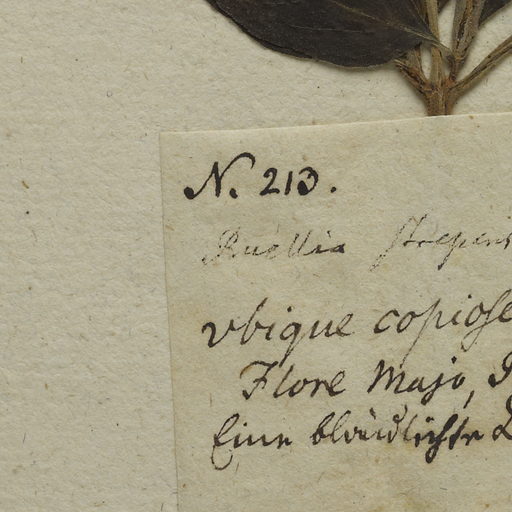 N. 213.
Ruellia strepens
Vbique copiose
Flore Majo,
Eine blaŭlichte